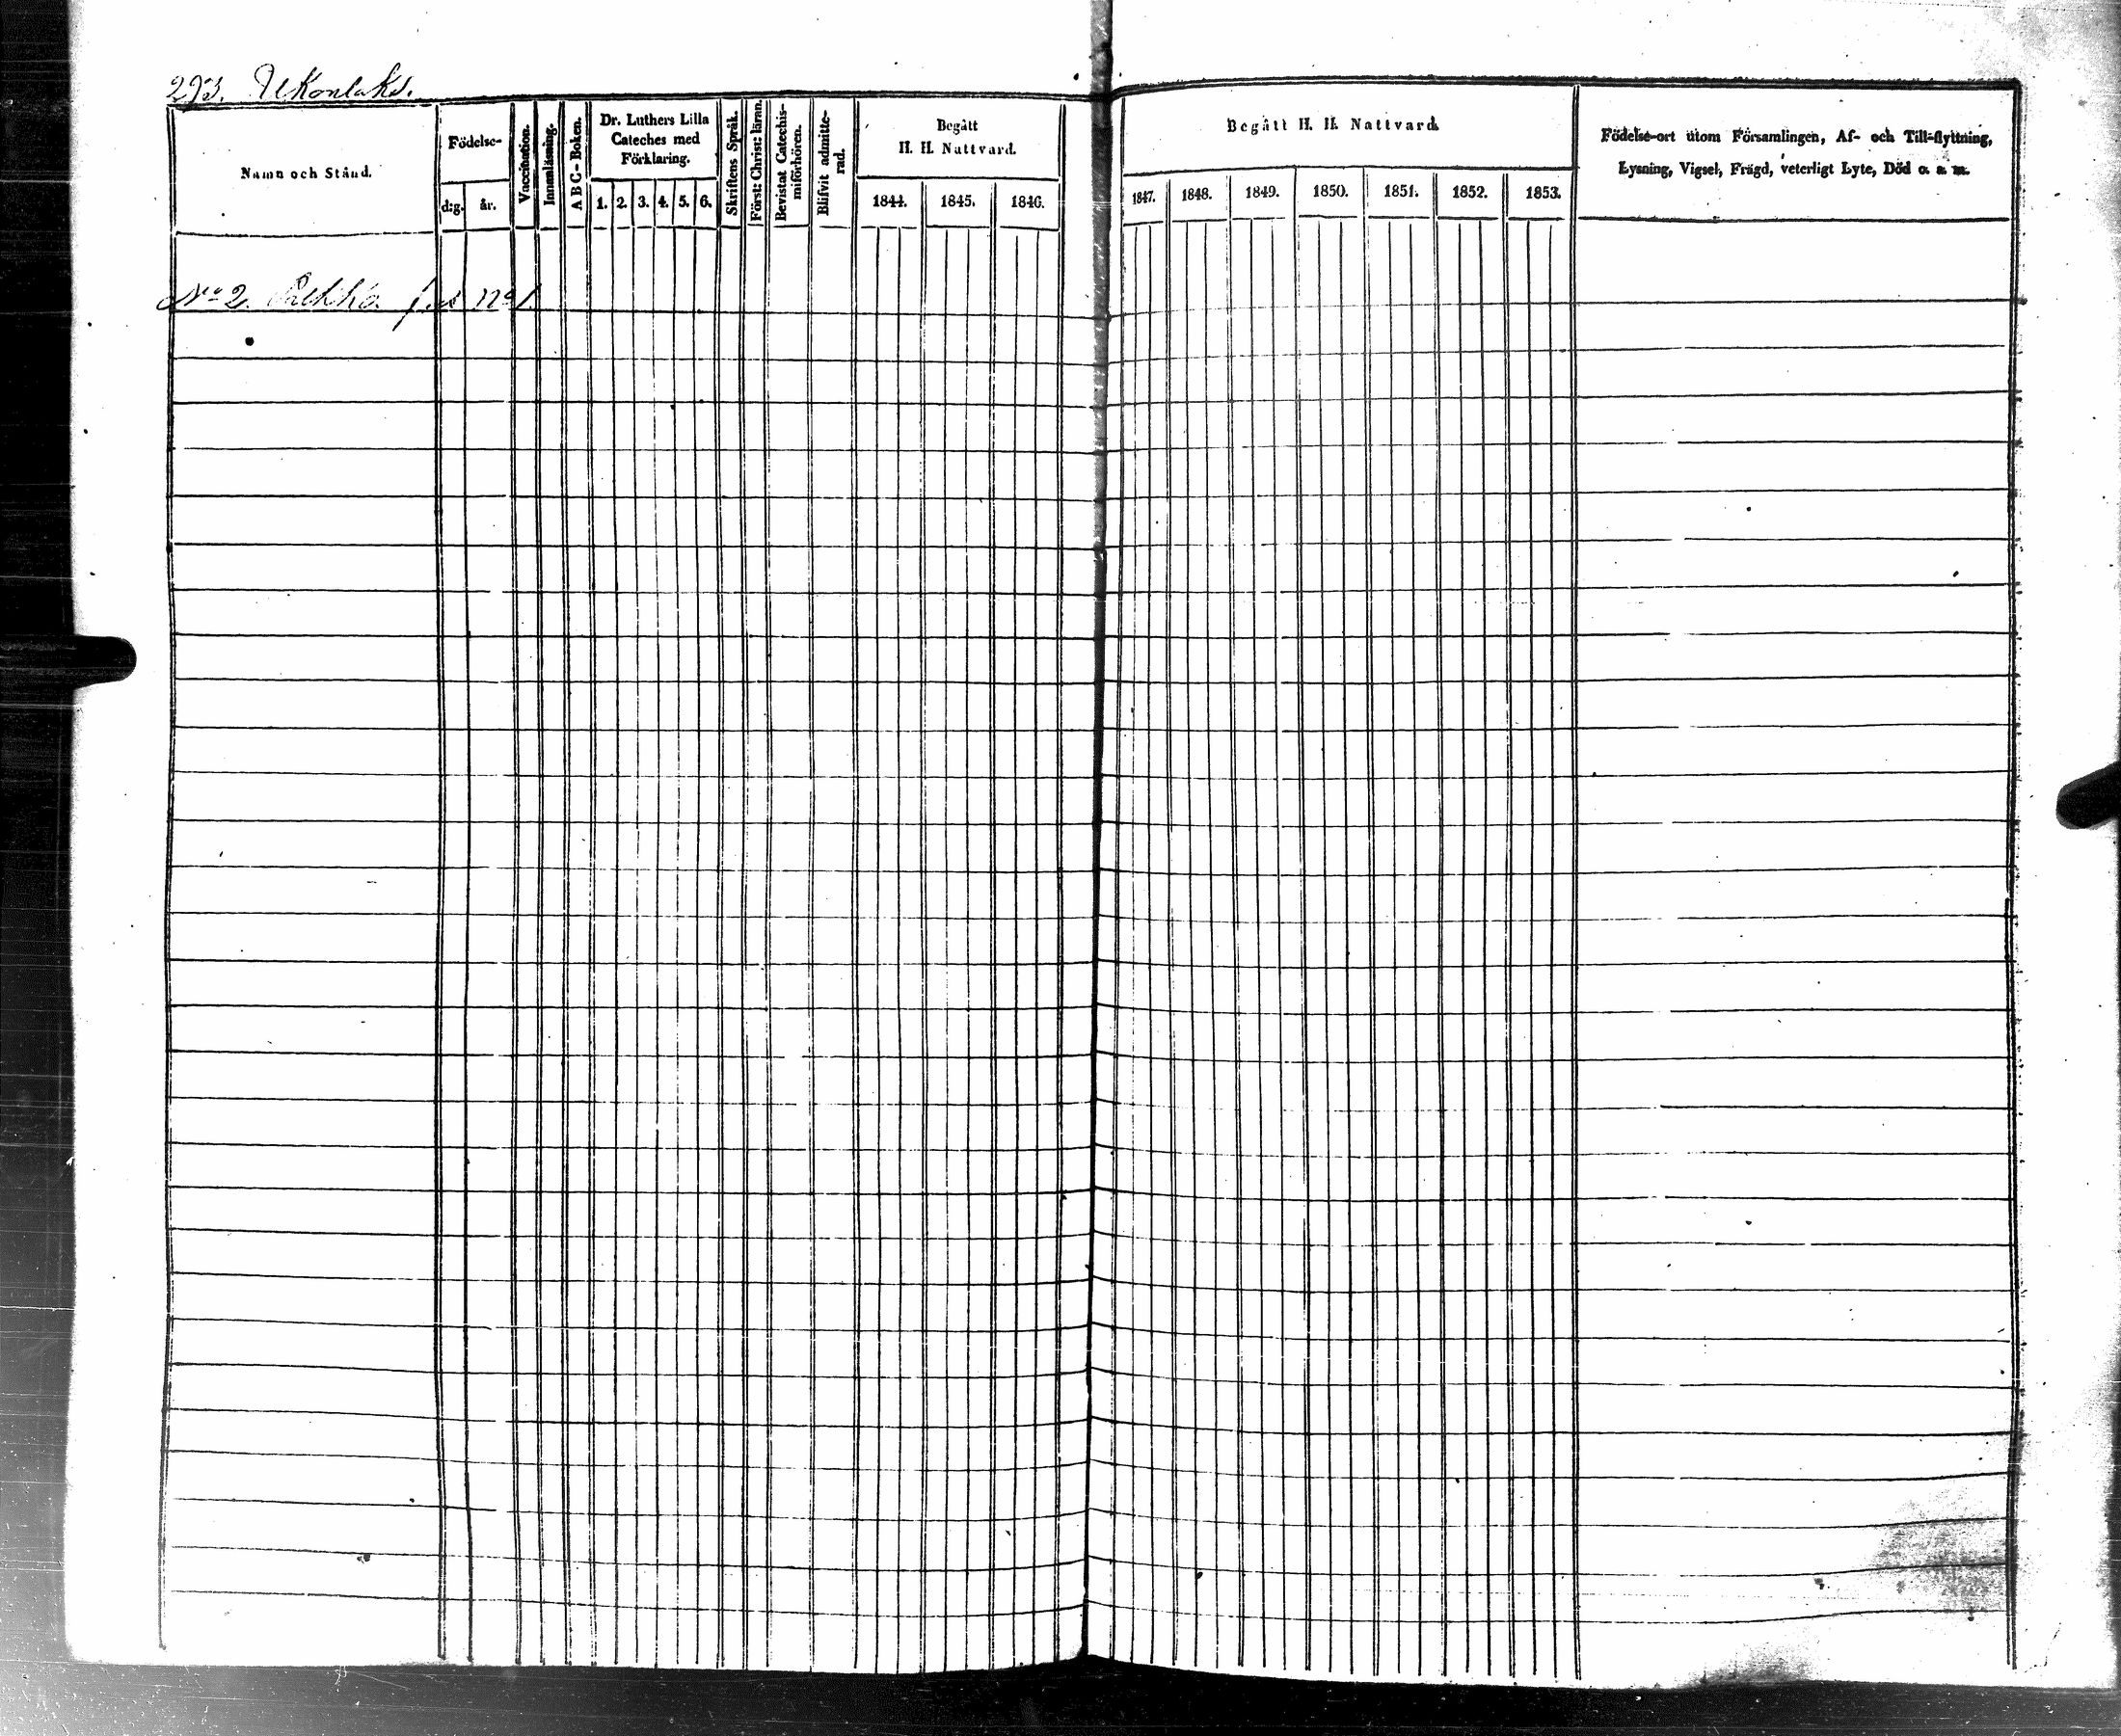 293.
Namn och Stånd.
Födelse-
d:g. år.
Vaccination.
Innenläsning.
A B C-Boken.
Dr. Luthers Lilla
Cateches med
Förklaring.
1. 2. 3. 4. 5. 6.
Skriftens Språk.
Först: Christ: läran.
Bevistat Catechis-
miförhören.
Blifvit admitte-
rad.
Begått
H. H. Nattvard.
1844. 1845. 1846.
Begått H. H. Nattvard.
1847. 1848. 1849. 1850. 1851. 1852. 1853.
Födelse-ort utom Församlingen, Af- och Till-flyttning,
Lysning, Vigsel, Frägd, veterligt Lyte, Död o. s. m.
No 2.